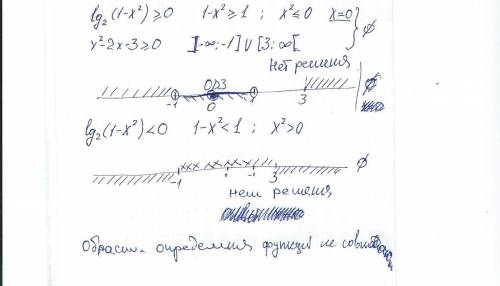 lg₂(1-x²)≥0 1-x²≥1 ; x²≤0 x=0 } ∅
x²-2x-3≥0 ]-∞;-1] ∪ [3;∞[
Нет решения
ОДЗ
-1 0 1 3 ∅
lg₂(1-x²)<0 1-x²<1 ; x²>0
-1 3 ∅
нет решения
определения функций не